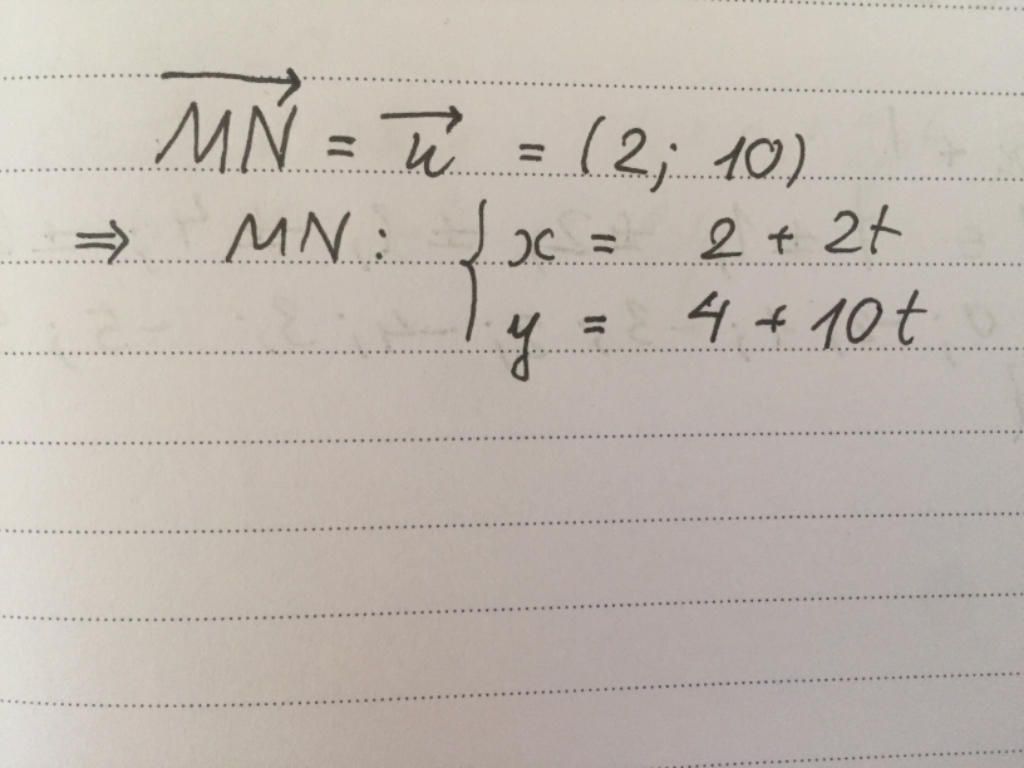 \overrightarrow{MN} = \overrightarrow{u} = (2; 10)
⇒ MN: { x = 2 + 2t
y = 4 + 10t